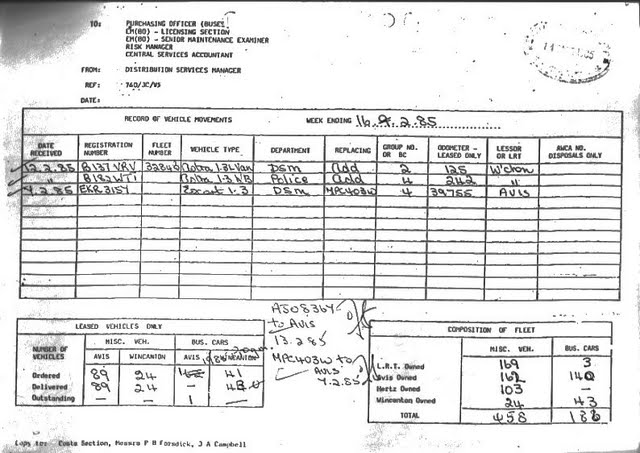 TO: PURCHASING OFFICER (BUSES)
CM(BO) - LICENSING SECTION
CM(BO) - SENIOR MAINTENANCE EXAMINER
RISK MANAGER
CENTRAL SERVICES ACCOUNTANT
FROM: DISTRIBUTION SERVICES MANAGER
REF: 740/JC/VS
DATE:
RECORD OF VEHICLE MOVEMENTS WEEK ENDING 16.2.85
DATE RECEIVED REGISTRATION NUMBER FLEET NUMBER VEHICLE TYPE DEPARTMENT REPLACING GROUP NO. OR BC ODOMETER - LEASED ONLY LESSOR OR LRT AWCA NO. DISPOSALS ONLY
12.2.85 B137 VRV 3284 Astra 1.3L Van DSM Add 2 125 W'cton
Astra 1.3 Police Add 4 242 "
4.2.85 EKR 315Y Escort 1.3 DSM MPC403W 4 39755 AVIS
AJO836Y
to AVIS
13.2.85
MPC403W to
AVIS
4.2.85
LEASED VEHICLES ONLY
NUMBER OF VEHICLES MISC. VEH. BUS. CARS
AVIS WINCANTON AVIS WINCANTON
Ordered 89 24 41
Delivered 89 24 -
Outstanding - - 1 -
COMPOSITION OF FLEET
MISC. VEH. BUS. CARS
L.R.T. Owned 169 3
Avis Owned 162 140
Hertz Owned 103 -
Wincanton Owned 24 43
TOTAL 458 186
Copy to: Costa Section, Messrs P B Forsdick, J A Campbell